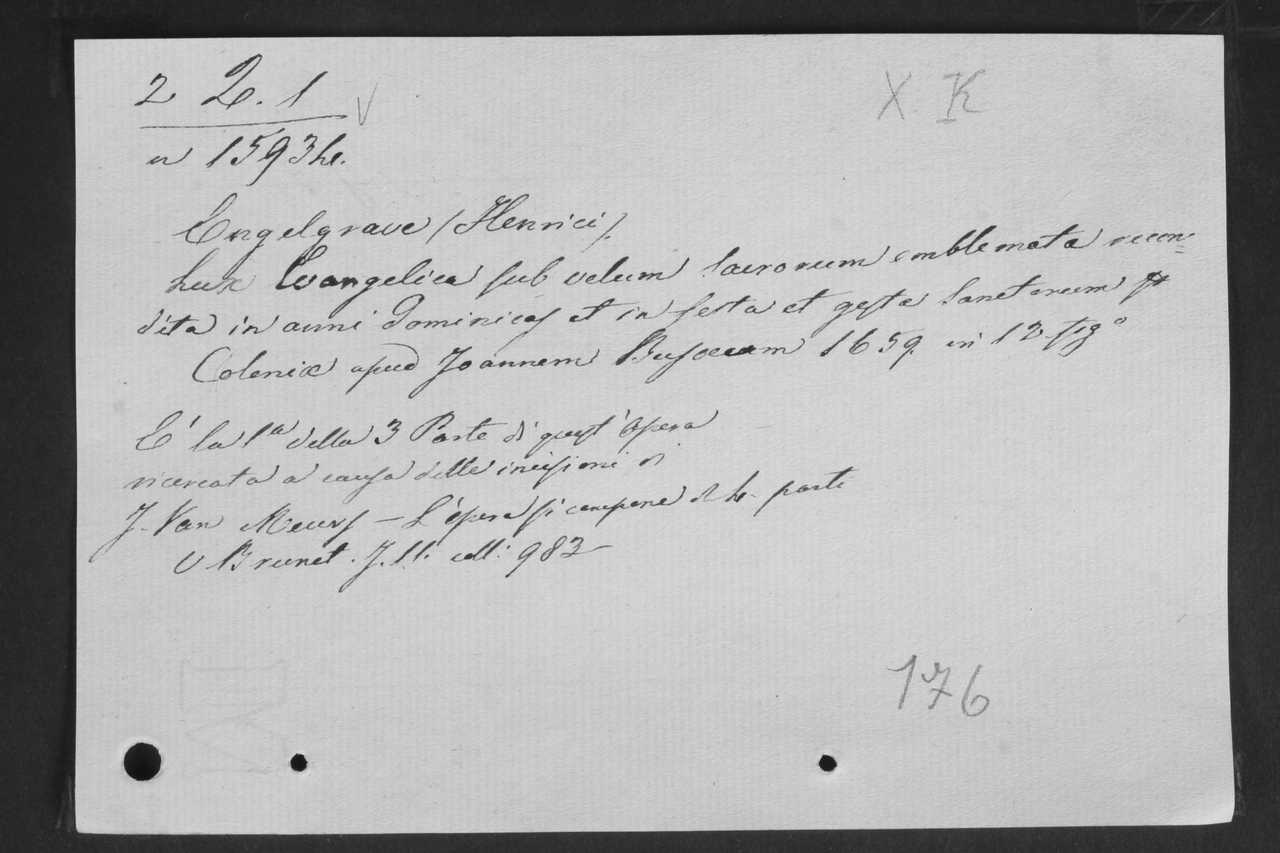 2 2. 1 V
X. K
n 1593 he.
Engelgrave (Henrici).
Lux Evangelica sub velum sacrorum emblemata recon=
dita in anni dominicas et in festa et gesta Sanctorum
Coloniæ apud Joannem Busæum 1659. in 12 fig°
E' la 1a della 3 Parte di quest'Opera
ricercata a causa delle incisioni di
J. Van Meurs – L'opera si compone di 4. parti
V Brunet. J. II. coll: 983 –
176